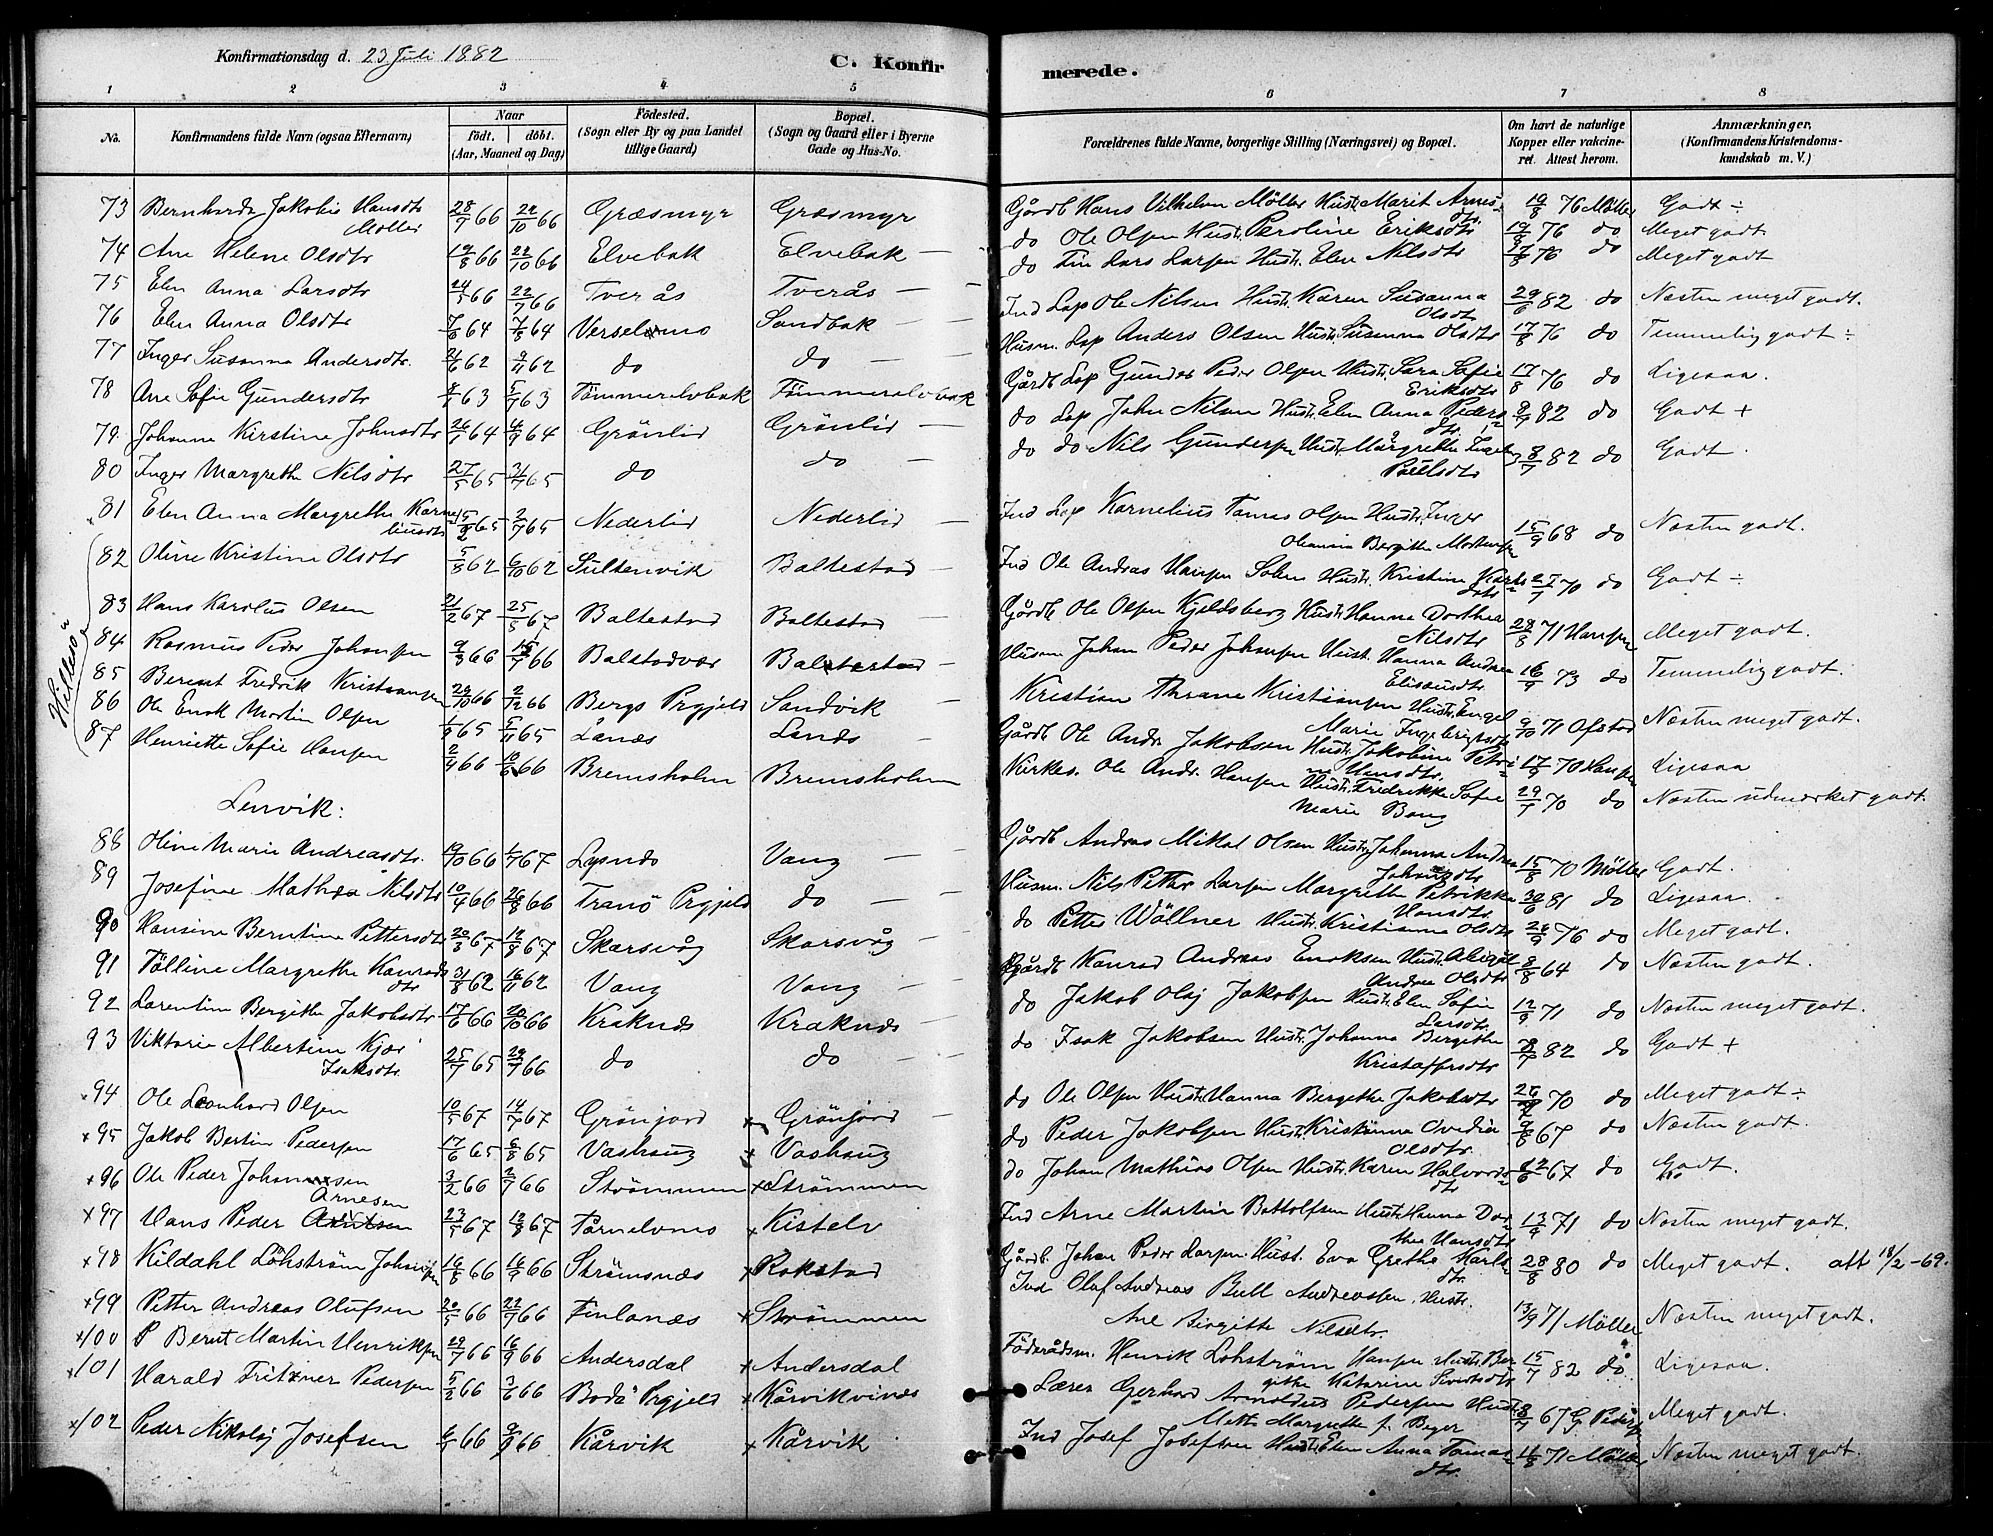 Konfirmationsdag d. 23 Juli 1882
C. Konfir
merede.
1 2 3 4 5 6 7 8
No.
Konfirmandens fulde Navn (ogsaa Efternavn)
Naar
födt. döbt.
(Aar, Maaned og Dag)
Födested.
(Sogn eller By og paa Landet
tillige Gaard)
Bopæl.
(Sogn og Gaard eller i Byerne
Gade og Hus-No.
Forældrenes fulde Navne, borgerlige Stilling (Næringsvei) og Bopæl.
Om havt de naturlige
Kopper eller vakcine-
ret. Attest herom.
Anmærkninger,
(Konfirmandens Kristendoms-
kundskab m. V.)
73 Bernharda Jakobie Hansdtr 28/7 66 22/10 66 Græsmyr Græsmyr Gårdb Hans Vilhelm Möller Hustr. Marit Arnes- 19/8 76 Möller Godt ÷
Möller dtr.
74 Ane Helene Olsdtr 19/8 66 22/10 66 Elvebak Elvebak — do Ole Olsen Hust. Paroline Eriksdtr 19/8 76 do Meget godt
75 Elen Anna Larsdtr 24/5 66 22/7 66 Tverås Tverås — do Fin Lars Larsen Hustr. Elen Nilsdtr 76 do Meget godt
76 Elen Anna Olsdtr 64 64 Verselvmo Sandbak — Ind Lap Ole Nilsen Hustr. Karen Susanna 29/6 82 do Næsten meget godt.
Olsdtr
77 Inger Susanna Andersdtr. 62 62 do do — Husm. Lap Anders Olsen Hustr. Susanna Olsdtr 17/8 76 do Temmelig godt ÷
78 Ane Sofie Gundersdtr 63 5/7 63 Tömmerelvbak Tömmerelvbak Gårdb Lap Gunder Peder Olsen Hustr. Sara Sofie 17/8 76 do Ligesaa.
Eriksdtr
79. Johanne Kirstine Johnsdtr 64 64 Grönlid Grönlid — do Lap John Nilsen Hustr. Elen Anna Peders- 82 do Godt +
dtr.
80 Inger Margrethe Nilsdtr 27/5 65 31/7 65 do do — do do Nils Gundersen Hustr. Margrethe Ingeb. 8/7 82 do Godt
Poulsdtr
81 Elen Anna Margrethe Karne- 65 2/7 65 Nederlid Nederlid — Ind Lap Kornelius Tomas Olsen Hustr. Inger 15/9 68 do Næsten godt.
liusdtr Oleanna Bergithe Mortensen
Hillesö
82 Oline Kristine Olsdtr 5/8 62 6/10 62 Sultenvik Baltestad — Ind Ole Andreas Hansen Hustr. Kristine 27/7 70 do Godt ÷
dtr.
83 Hans Karolus Olsen 21/2 67 25/5 67 Baltestad Baltestad — Gårdb Ole Olsen Kjeldsberg Hustr. Hanna Dorthea 28/8 71 Hansen Meget godt.
Nilsdtr
84 Rasmus Peder Johansen 9/3 66 15/7 66 Balstadvær Baltestad — Husm Johan Peder Johansen Hust. Hanna Andrea 16/9 73 do Temmelig godt.
Elisausdtr.
85 Berent Fredrik Kristiansen 29/10 66 2/12 66 Bergs Prgjeld Sandvik — Kristian Thrane Kristiansen Hustr. Engel 9/10 71 Ofstad Næsten meget godt.
Marie Ingebrigtsdtr
86 Ole Enok Martin Olsen 65 5/11 65 Lånæs Lånæs — Gårdb Ole Andr. Jakobsen Hustr. Jakobine Petri- 17/9 70 Hansen Ligesaa
Hansdtr.
87 Henriette Sofie Hansen 2/4 66 10/6 66 Bremsholm Bremsholm Kirkes. Ole Andr. Hansen Hustr. Fredrikke Sofie 29/7 70 do Næsten udmærket godt.
Marie Bang
Lenvik:
88 Oline Marie Andreasdtr. 19/10 66 1/7 67 Lysnæs Vang — Gårdb Andreas Mikal Olsen Hustr. Johanna Andrea 15/8 70 Möller Godt.
89 Josefine Mathea Nilsdtr 10/4 66 26/8 66 Tranö Prgjeld do — Husm. Nils Petter Larsen Margrethe Petrikka 30/6 81 do Ligesaa.
Hansdtr.
90 Hansine Berntine Pettersdtr 20/3 67 12/8 67 Skarsvåg Skarsvåg — do Petter Wöllner Hustr. Kristianna Olsdtr 26/9 76 do Meget godt.
91 Tölline Margrethe Konrads- 31/8 62 16/11 62 Vang Vang — Gårdb Konrad Andreas Enoksen Hustr. Abigal 8/8 64 do Næsten godt.
dtr Andrea Olsdtr
92 Larentine Bergithe Jakobsdtr 17/6 66 20/10 66 Kraknæs Kraknæs — do Jakob Olaj Jakobsen Hustr. Elen Sofie 12/9 71 do Næsten meget godt.
Larsdtr.
93 Viktoria Albertine Kjær 25/7 65 29/7 66 do do — do Isak Jakobsen Hustr. Johanna Bergithe 82 do Godt +
Isaksdtr. Kristoffersdtr
×94 Ole Leonhard Olsen 10/5 67 14/7 67 Grönjord × Grönjord — do Ole Olsen Hustr. Hanna Bergethe Jakobsdtr 70 do Meget godt ÷
×95 Jakob Bertin Pedersen 17/6 65 6/8 65 Vashaug × Vashaug do Peder Jakobsen Hustr. Kristianna Ovedia 9/8 67 do Næsten godt.
Olsdtr.
×96 Ole Peder Johannesen 3/2 66 2/7 66 Strömmen × Strömmen do Johan Mathias Olsen Hustr. Karen Halvords- 67 do Godt.
dtr
×97 Hans Peder Arnesen 23/5 67 12/8 67 Tårnelvmo × Kistelv Ind Arne Martin Bottolfsen Hustr. Hanna Dor- 13/9 71 do Næsten meget godt.
thea Hansdtr
×98 Kildahl Löhström Johansen 16/8 66 16/9 66 Strömsnæs × Rokstad Gårdb. Johan Peder Larsen Hust. Eva Grethe Karls- 28/8 80 do Meget godt. att 18/2-69.
dtr.
×99 Petter Andreas Olufsen 20/5 66 22/7 66 Finlanæs × Strömmen Ind Oluf Andreas Bull Andreassen Hustr. 13/9 71 Möller Næsten meget godt.
Ane Birgitte Nilsdtr.
×100 P Bernt Martin Henriksen 29/7 66 16/9 66 Andersdal × Andersdal Föderådsm. Henrik Löhström Hansen Hustr. Ber- 15/7 82 do Ligesaa.
githe Katarina Sivertsdtr
×101 Harald Fritzner Pedersen 5/2 66 3/6 66 Bodö Prgjeld × Kårvikvinde Lærer Gerhard Arnoldus Pedersen Hustr 8/7 67 G. Peders. Meget godt.
Mette Margrethe f. Beyer
×102 Peder Nikolaj Josefsen 66 66 Kårvik × Kårvik Ind Josef Josefsen Hustr. Elen Anna Tomas- 11/8 71 Möller Næsten meget godt.
dtr.